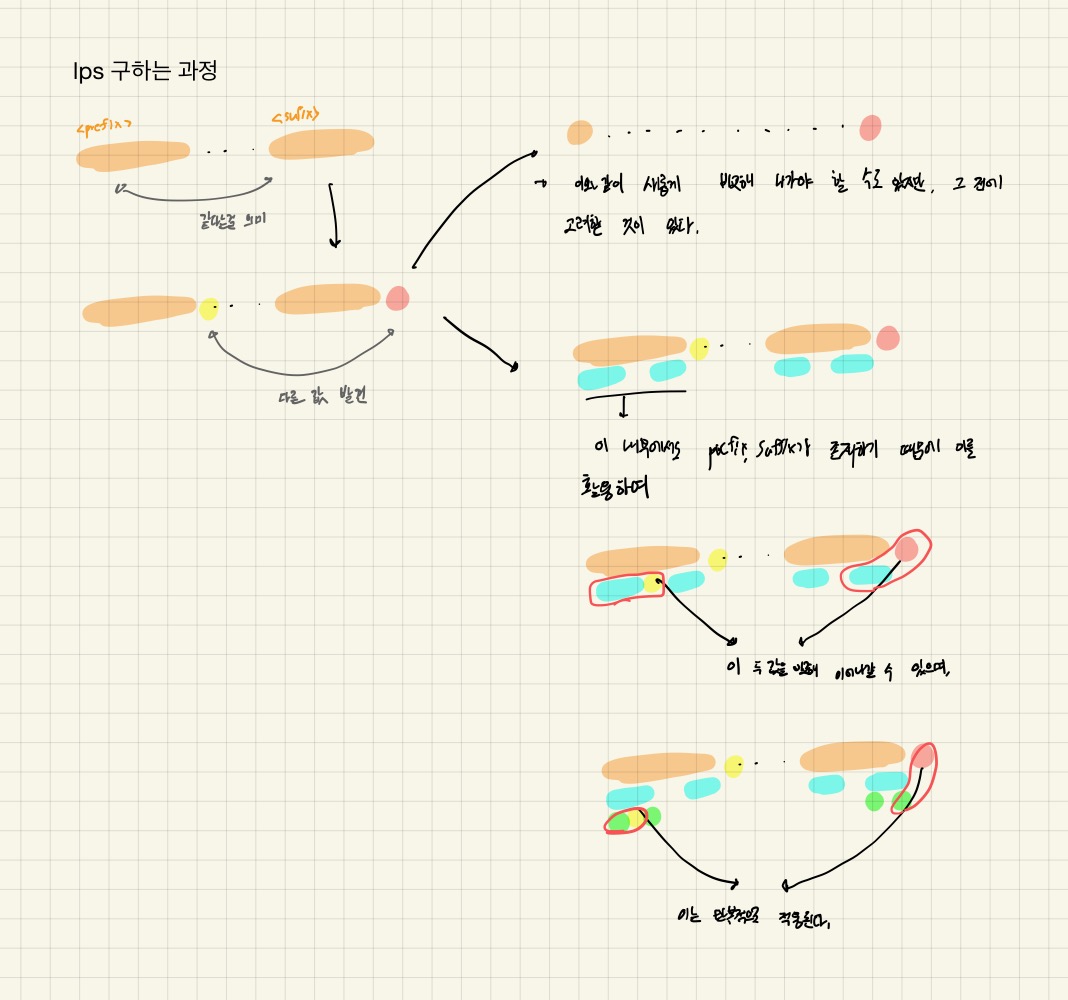 lps 구하는 과정
<prefix>
<sufix>
같다는걸 의미
→ 이와 같이 새롭게 비교해 나가야 할 수도 있지만, 그 전에
고려할 것이 있다.
다른 값 발견
이 내부에서도 prefix, suffix가 존재하기 때문에 이를
활용하여
이 두 값을 비교해 이어나갈 수 있으며,
이는 반복적으로 적용된다.